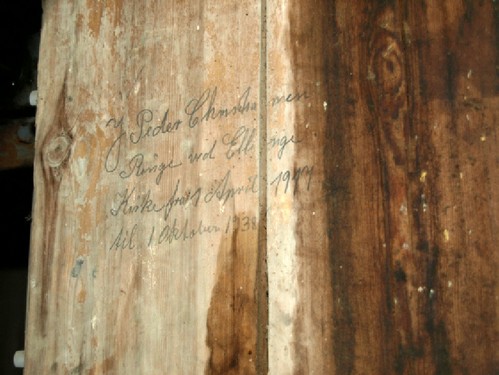 J Peder Christiansen
Ringe ved Ell inge
Kirke fra 1 April 1917
til 1 Oktober 1938